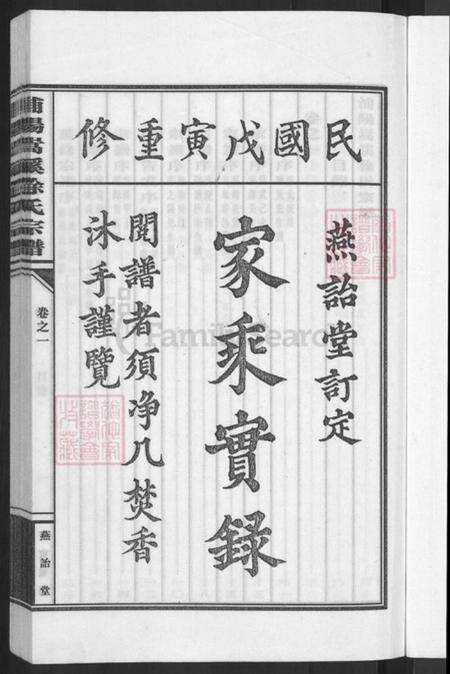 民國戊寅重修
燕詒堂訂定
家乘實錄
閱譜者須净几焚香
沐手謹覽
浦陽嵩溪徐氏宗譜
卷之一
燕詒堂
FamilySearch